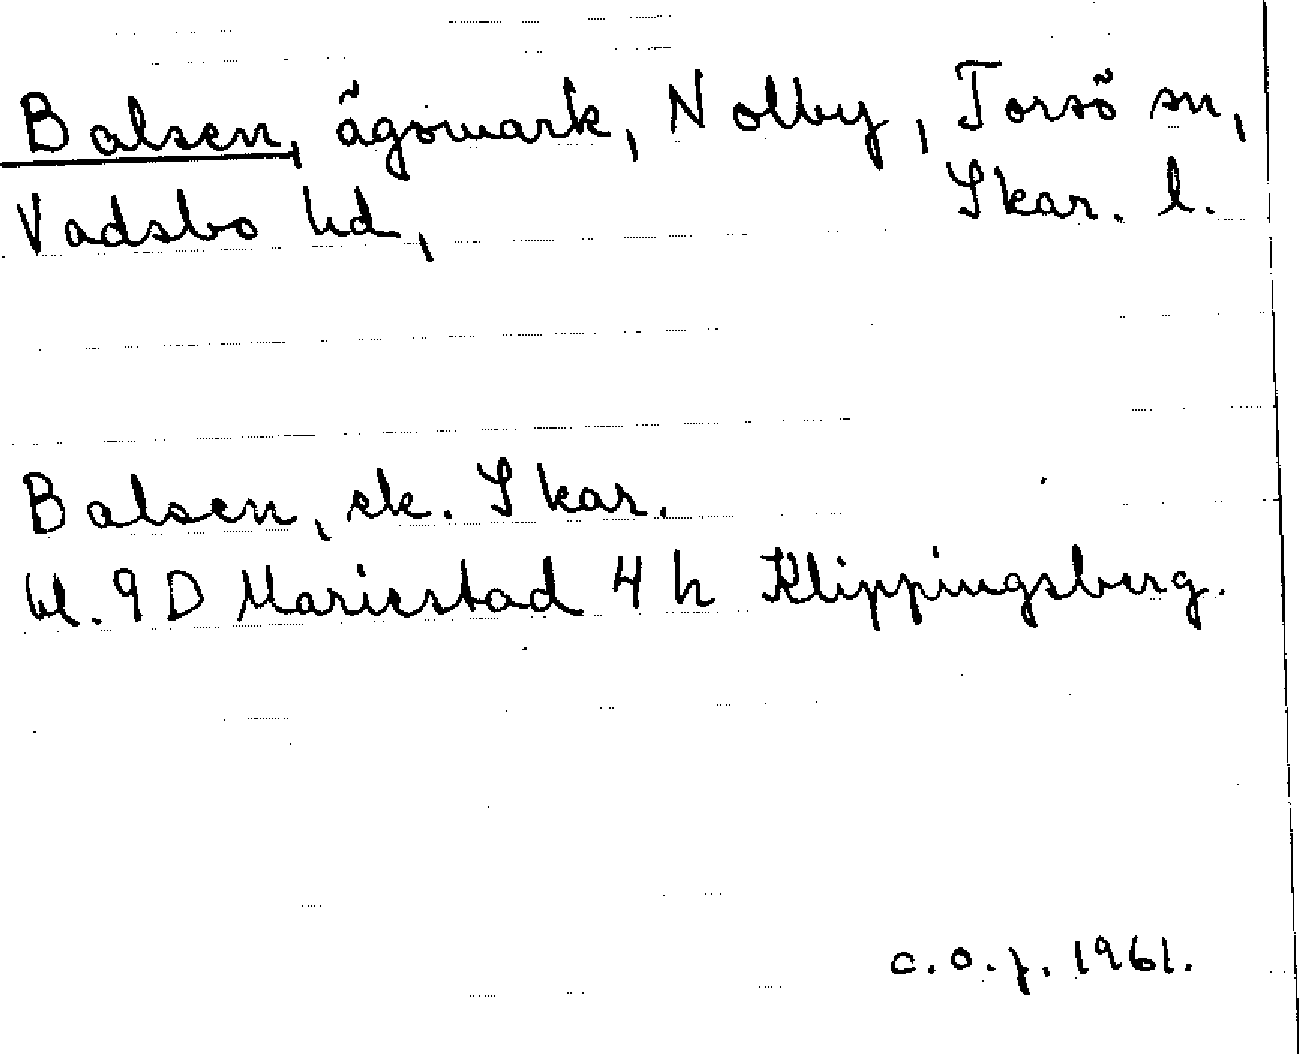 Balsen, ägomark, Nolby, Torsö sn,
Vadsbo hd, Skar. l.
Balsen, ek. Skar.
bl. 9D Mariestad 4 h Klippingsberg.
c.o.j. 1961.